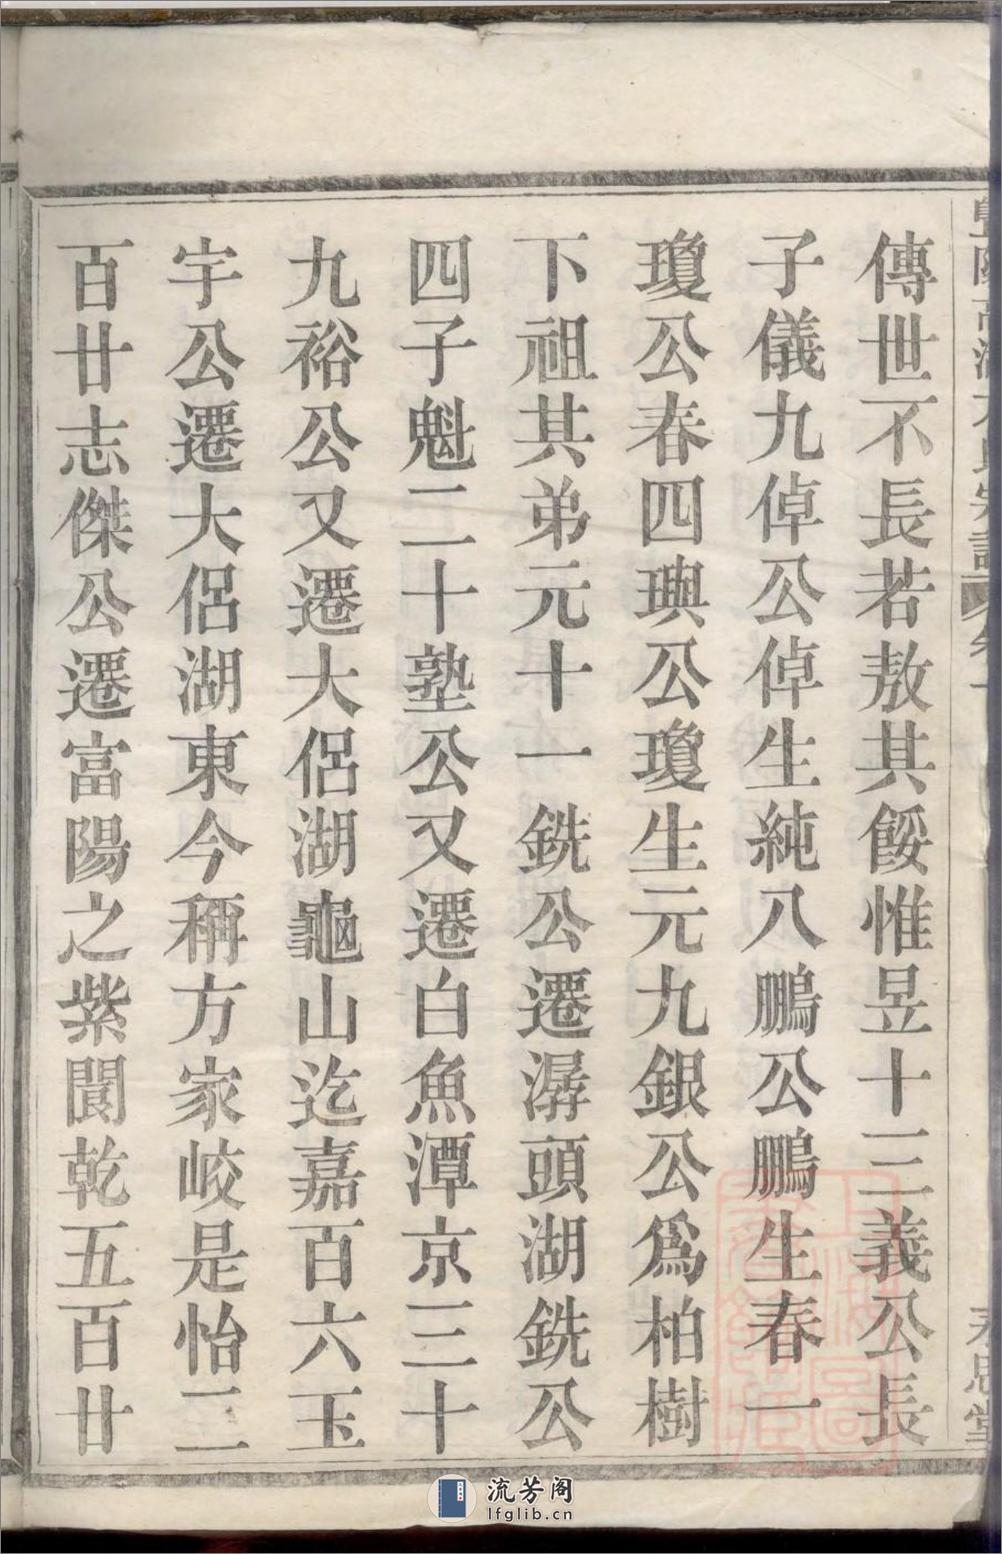 傳世不長若敖其餒惟昱十三義公長
子儀九倬公倬生純八鵬公鵬生春一
瓊公春四璵公瓊生元九銀公為柏樹
下祖其弟元十一銑公遷潺頭湖銑公
四子魁二十塾公又遷白魚潭京三十
九裕公又遷大侶湖龜山迄嘉百六玉
宇公遷大侶湖東今稱方家峧是怡二
百廿志傑公遷富陽之紫閬乾五百廿
流芳阁
lfglib.cn